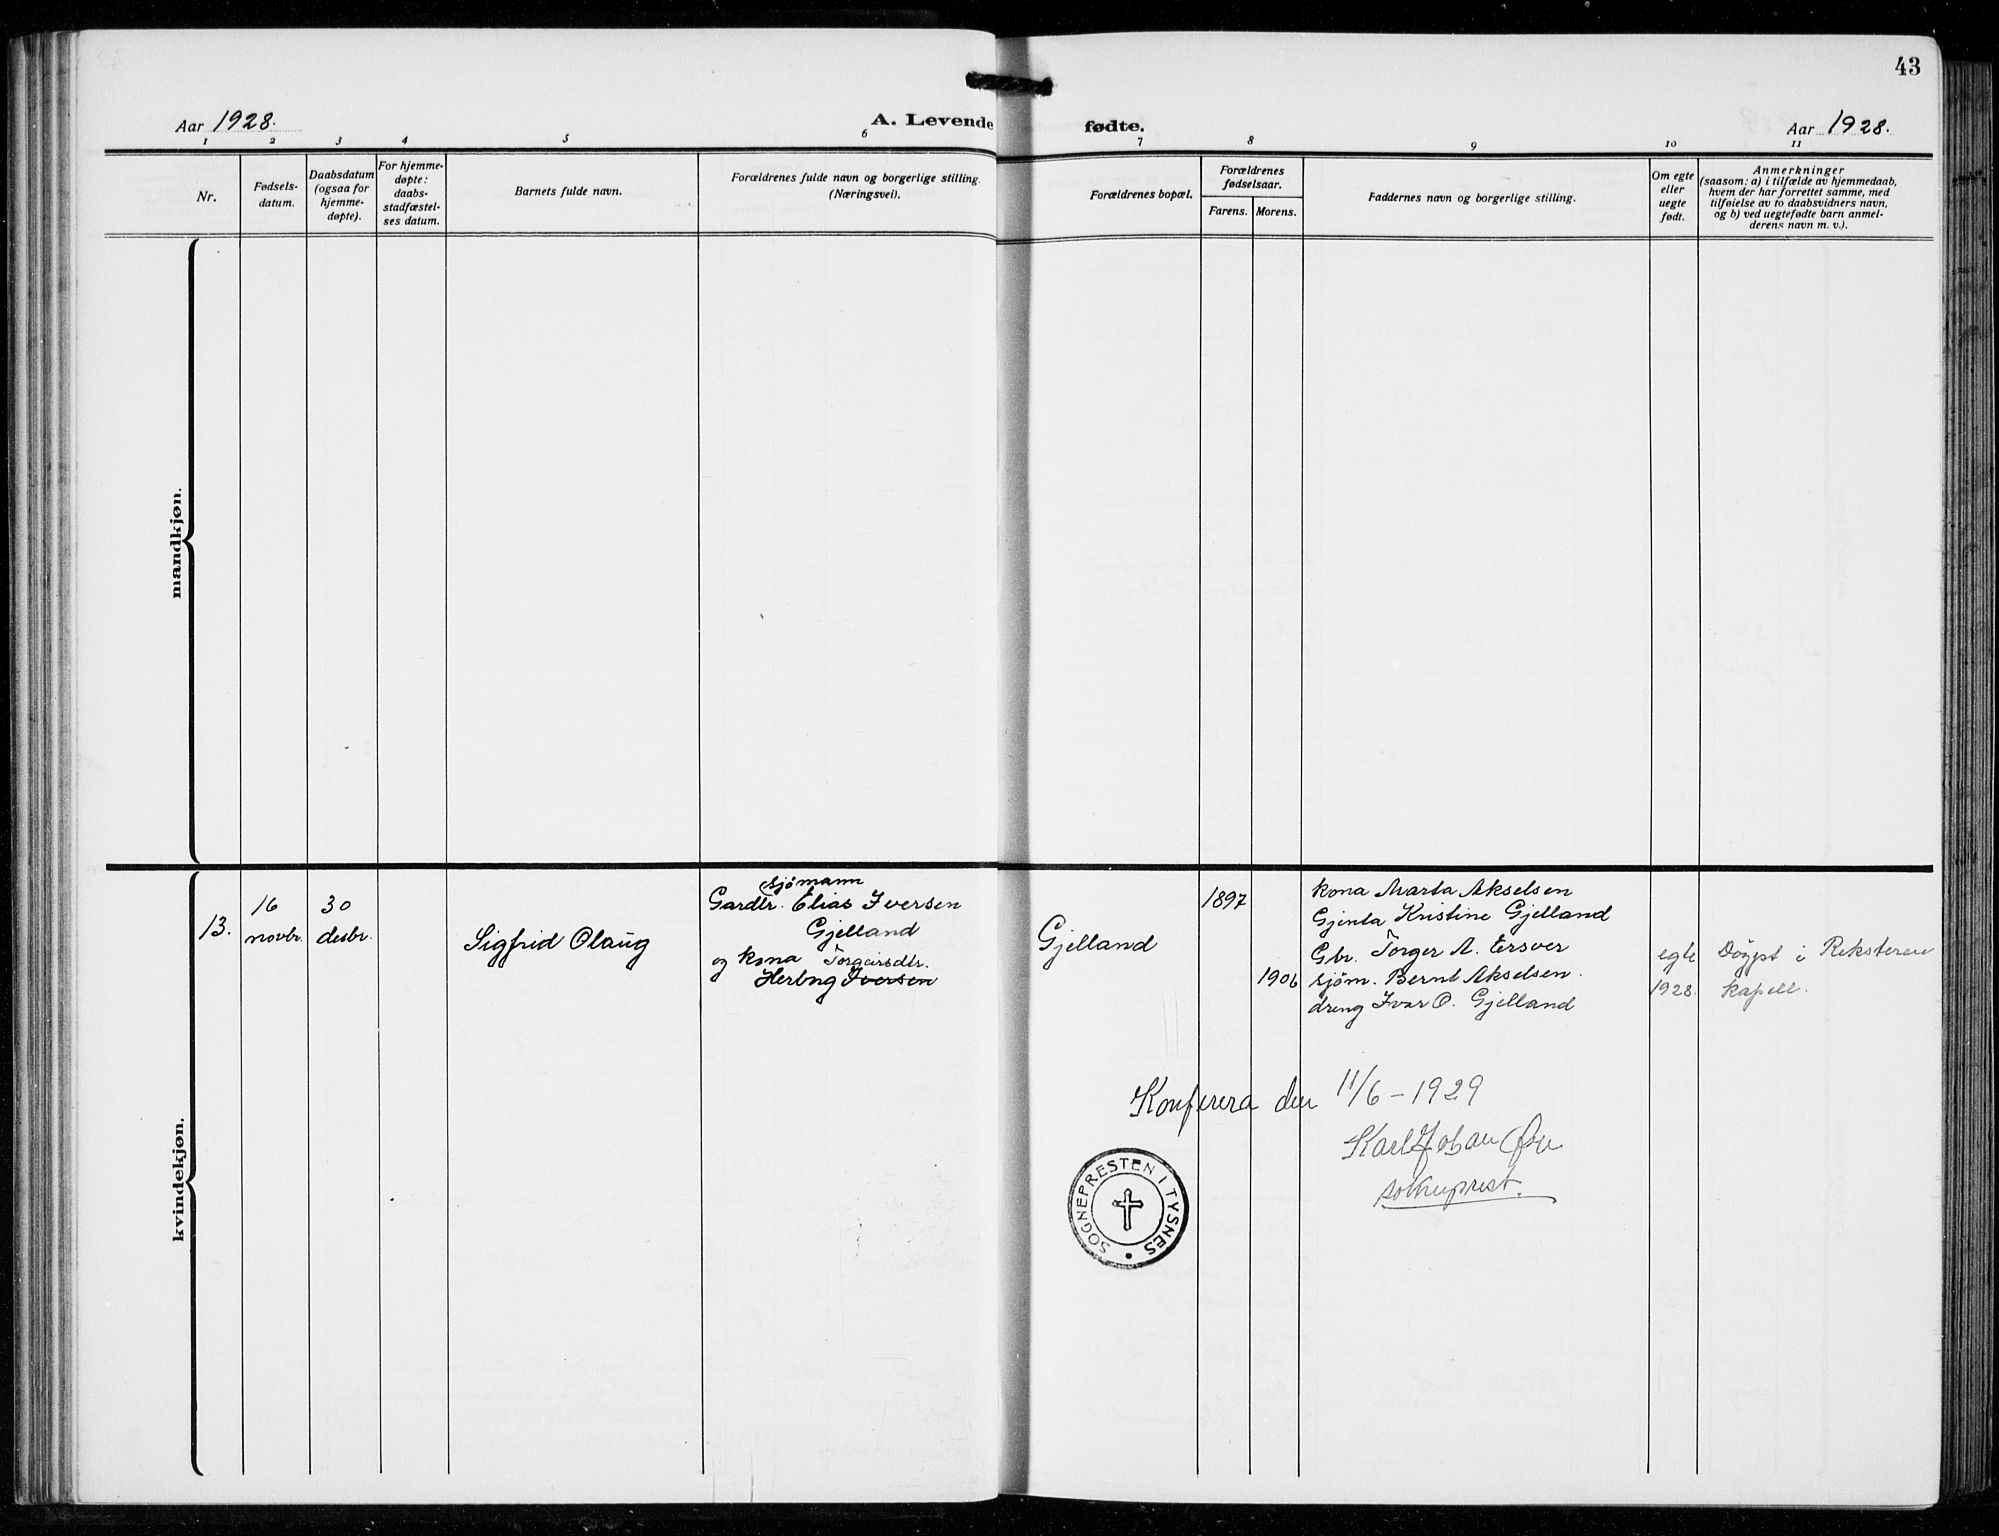 43
Aar 1928.
A. Levende fødte.
Aar 1928.
1 2 3 4 5 6 7 8 9 10 11
Nr.
Fødsels-
datum.
Daabsdatum
(ogsaa for
hjemme-
døpte).
For hjemme-
døpte:
daabs-
stadfæstel-
ses datum.
Barnets fulde navn.
Forældrenes fulde navn og borgerlige stilling.
(Næringsvei).
Forældrenes bopæl.
Forældrenes
fødselsaar.
Farens. Morens.
Faddernes navn og borgerlige stilling.
Om egte
eller
uegte
født.
Anmerkninger
(saasom: a) i tilfælde av hjemmedaab,
hvem der har forrettet samme, med
tilføielse av to daabsvidners navn,
og b) ved uegtefødte barn anmel-
derens navn m. v.).
mandkjøn.
kvindekjøn.
13.
16
novbr.
30
desbr.
Sigfrid Olaug
sjömann
Gardbr. Elias Iversen
Gjelland
og kona Torgeirsdtr.
Hertny Iversen
Gjelland
1897
1906
kona Marta Akselsen
Gjenta Kristine Gjelland
Gbr. Torger A. Ersver
sjöm. Bernt Akselsen.
dreng Ivar O. Gjelland
egte
1928.
Döypt i Reksteren
kapell.
Konferera den 11/6 - 1929
Karl Johan
sokneprest.
SOGNEPRESTEN I TYSNES